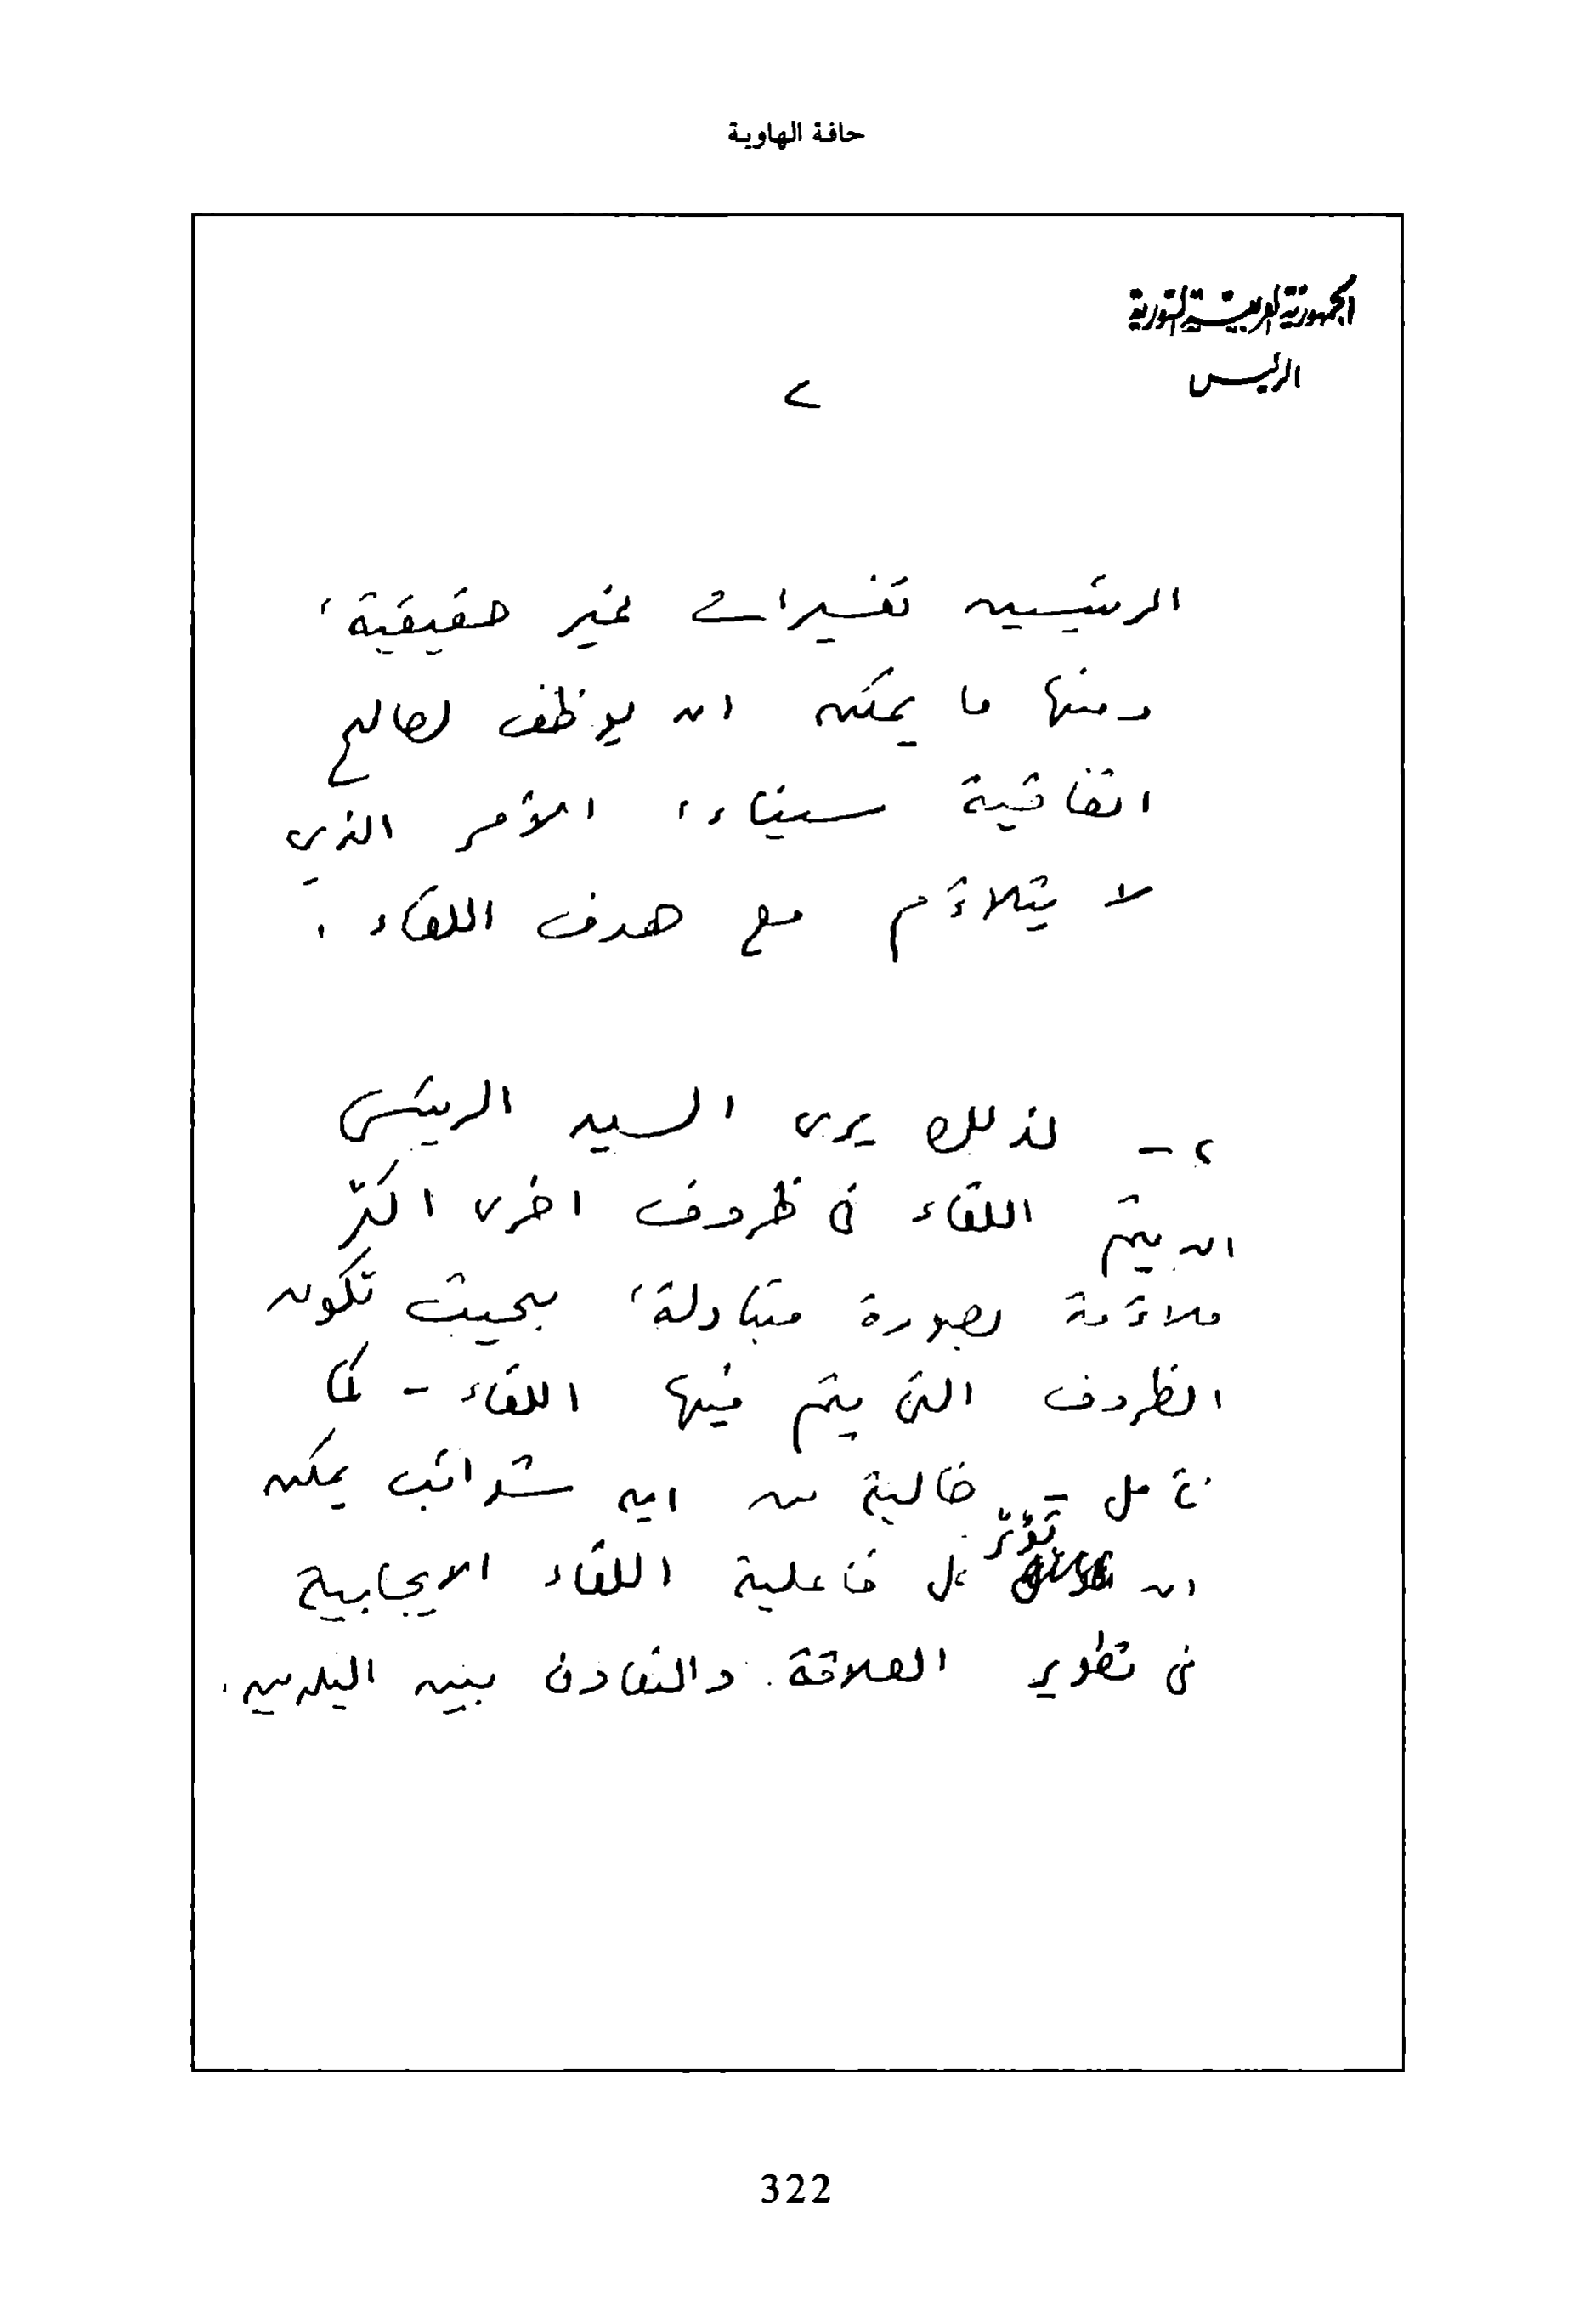 حافة الهاوية
الجمهورية العربية السورية
الرئيس
٢
الرئيسين تفسيرات غير حقيقية،
ومنها ما يمكن ان يوظف لصالح
اتفاقية سيناء، الأمر الذي
لا يتلاءم مع هدف اللقاء.
٢ - لذلك يرى السيد الرئيس
ان يتم اللقاء في ظروف اخرى اكثر
ملاءمة بصورة متبادلة، بحيث تكون
الظروف التي يتم فيها اللقاء - كما
نأمل - خالية من اية شوائب يمكن
ان تؤثر على فاعلية اللقاء الايجابية
في تطوير العلاقة والتعاون بين البلدين.
322